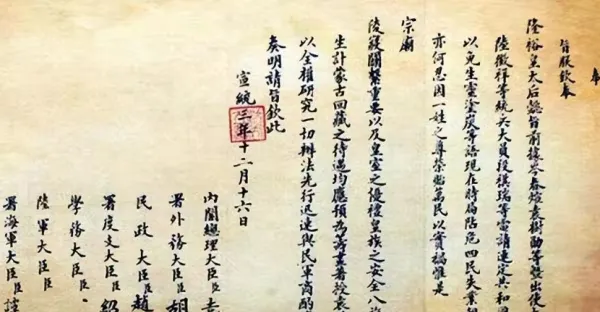 奉
旨朕欽奉
隆裕皇太后懿旨前據岑春煊袁樹勛等暨出使大
陸徵祥等統兵大員段祺瑞等電請速定共和國
以免生靈塗炭等語現在時局阽危四民失業朝
亦何忍因一姓之尊榮貽萬民以實禍惟是
宗廟
陵寢關繫重要以及皇室之優禮皇族之安全八旗
生計蒙古回藏之待遇均應預為籌畫著授袁
以全權研究一切辦法先行迅速與民軍商酌
奏明請旨欽此
宣統三年十二月十六日
內閣總理大臣臣袁
署外務大臣臣胡
民政大臣臣趙
署度支大臣臣紹
學務大臣臣
陸軍大臣臣
署海軍大臣臣譚